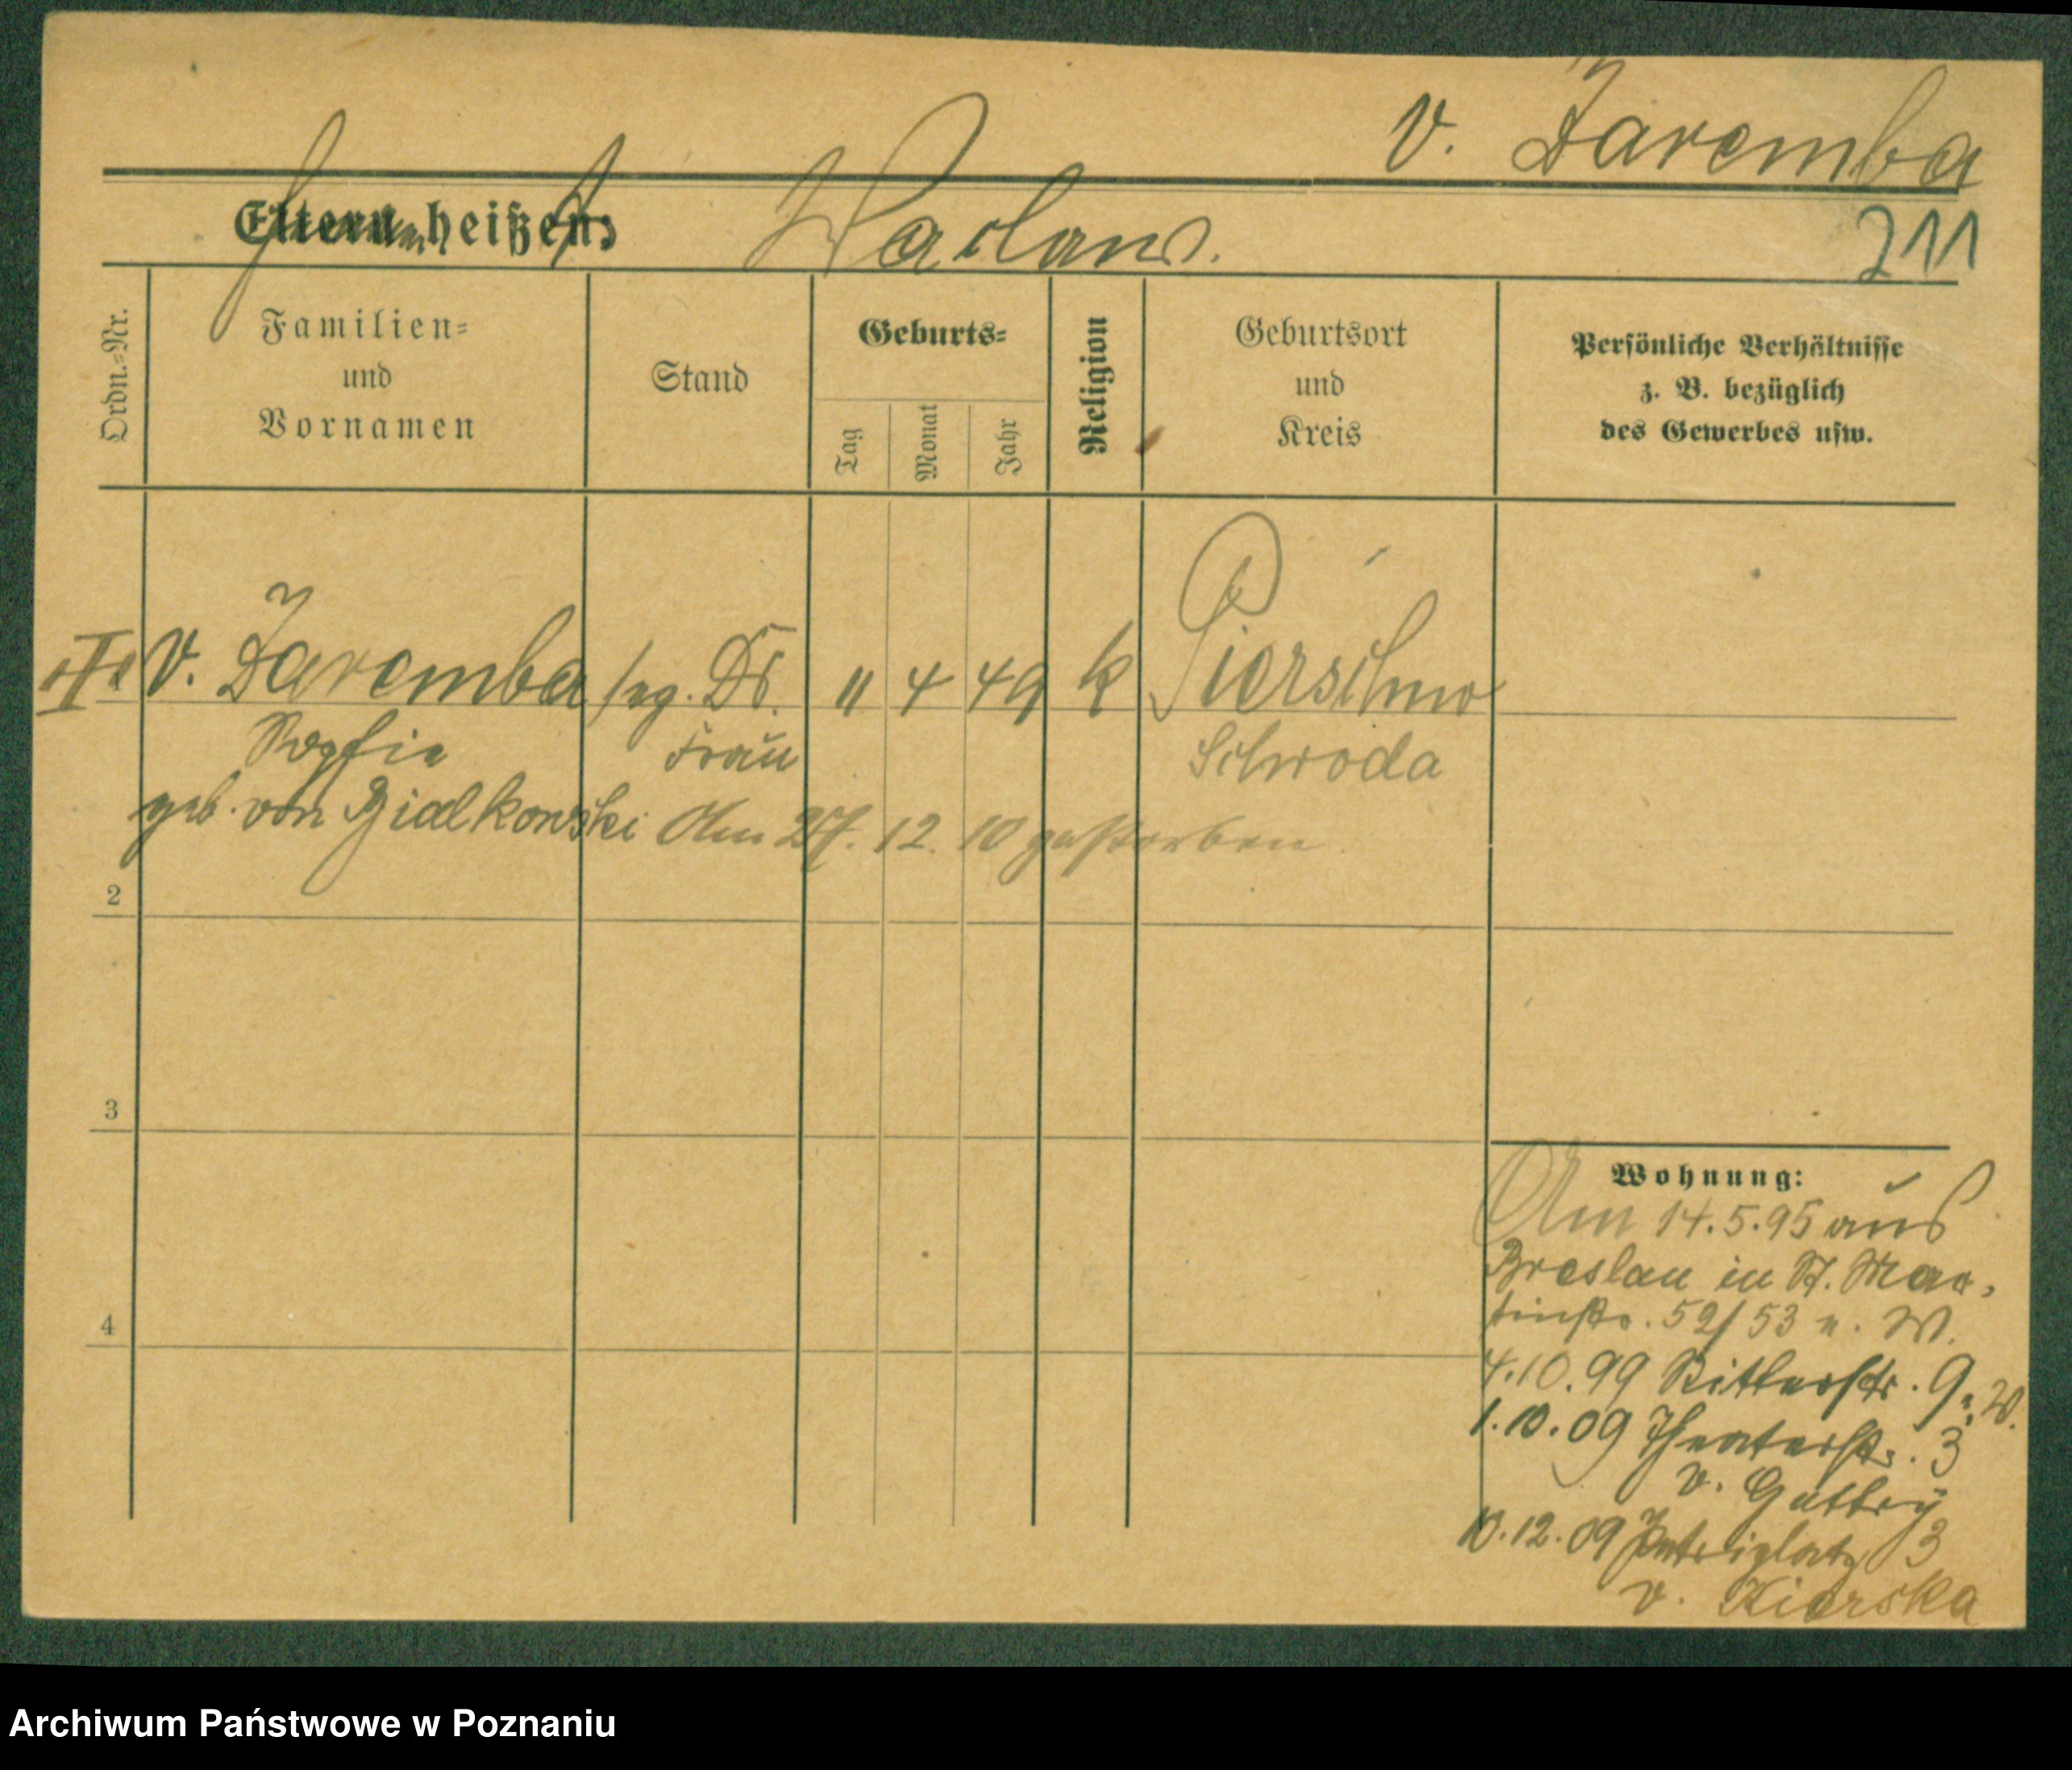 v. Zaremba
Eltern heißen:
Waclaus.
211
Ordn.=Nr.
Familien=
und
Vornamen
Stand
Geburts=
Tag
Monat
Jahr
Religion
Geburtsort
und
Kreis
Persönliche Verhältnisse
z. B. bezüglich
des Gewerbes usw.
v. Zaremba
Dr.
11 4 49 k
Pierschno
Sophie
Frau
Schroda
geb. von Bialkowski
Am 27. 12. 10 gestorben.
2
3
4
Wohnung:
Am 14.5.95 aus
Breslau in St. Mar-
tinstr. 52/53 n. W.
4.10.99 Ritterstr. 9 n. W.
1.10.09 Theaterstr. 3
v. Guttry
10.12.09 Petriplatz 3
v. Kierska
Archiwum Państwowe w Poznaniu